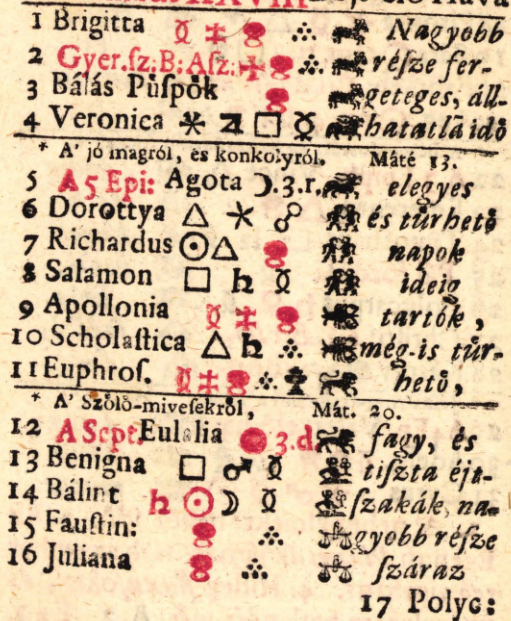 1 Brigitta ☿ ‡ ∴ Nagyobb
2 Gyer.ſz:B:Aſz: ∴ réſze fer-
3 Báláſ Püſpök geteges, áll-
4 Veronica ⚹ ♃ □ ☿ hatatlā idő
* A' jó magról, és konkolyról. Máté 13.
5 A 5 Epi: Agota ☽.3.r. elegyes
6 Dorottya △ ⚹ ☍ és tűrhető
7 Richardus ☉ △ napok
8 Salamon □ ♄ ☿ ideig
9 Apollonia ☿ ‡ tartók,
10 Scholaſtica △ ♄ ∴ még-is tűr-
11 Euphroſ. ☿ ‡ ∴ hető,
* A' Szőlő-miveſekről, Mát. 20.
12 A Sept. Eulalia 3.d fagy, és
13 Benigna □ ♂ ☿ tiſzta éjt-
14 Bálint ♄ ☉ ☽ ☿ ſzakák, na-
15 Fauſtin: ∴ gyobb réſze
16 Juliana ∴ ſzáraz
17 Polyc: